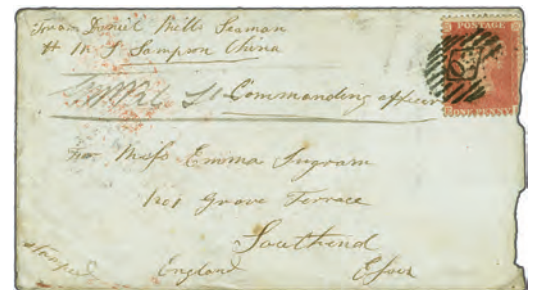 From Daniel Mills Seaman
H M S Sampson China
Commanding officer
For Miss Emma Ingram
Grove Terrace
Southend
England Essex
POSTAGE